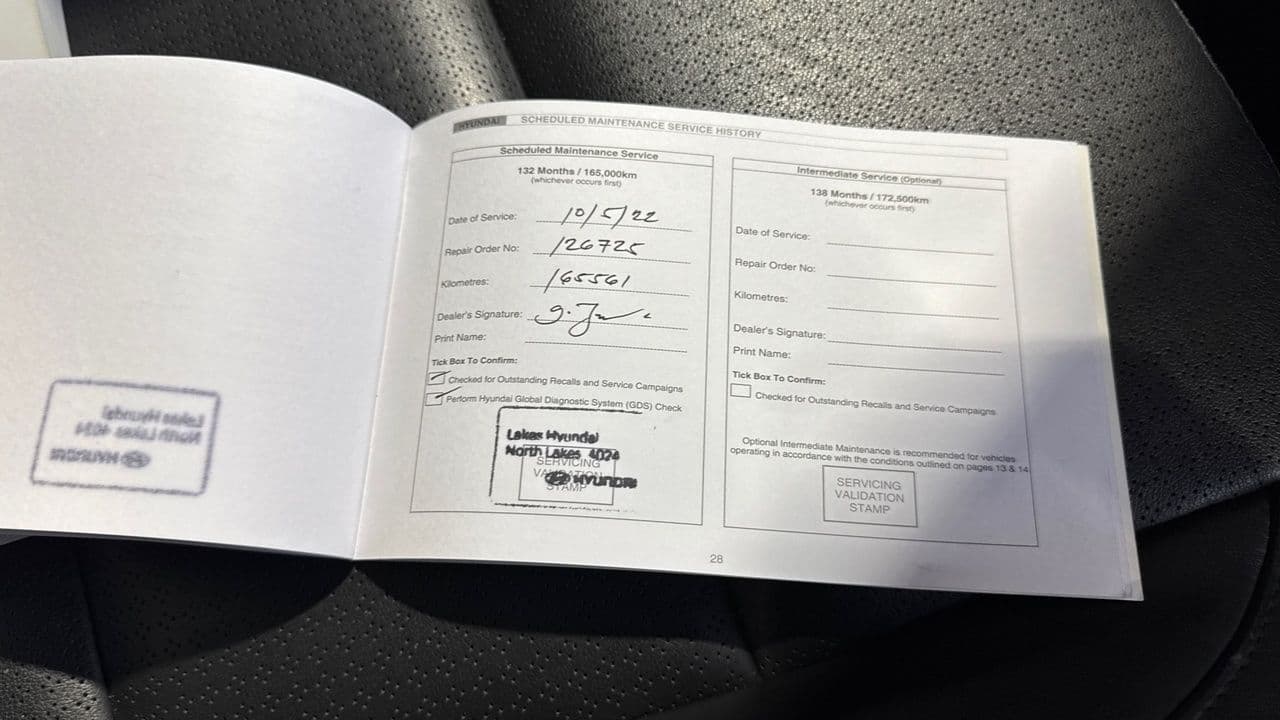 HYUNDAI SCHEDULED MAINTENANCE SERVICE HISTORY
Scheduled Maintenance Service
132 Months / 165,000km
(whichever occurs first)
Date of Service: 10/5/22
Repair Order No: 126725
Kilometres: 165561
Dealer's Signature:
Print Name:
Tick Box To Confirm:
Checked for Outstanding Recalls and Service Campaigns
Perform Hyundai Global Diagnostic System (GDS) Check
Lakes Hyundai
North Lakes 4024
SERVICING
VALIDATION
STAMP
HYUNDAI
Intermediate Service (Optional)
138 Months / 172,500km
(whichever occurs first)
Date of Service:
Repair Order No:
Kilometres:
Dealer's Signature:
Print Name:
Tick Box To Confirm:
Checked for Outstanding Recalls and Service Campaigns
Optional Intermediate Maintenance is recommended for vehicles
operating in accordance with the conditions outlined on pages 13 & 14
SERVICING
VALIDATION
STAMP
28